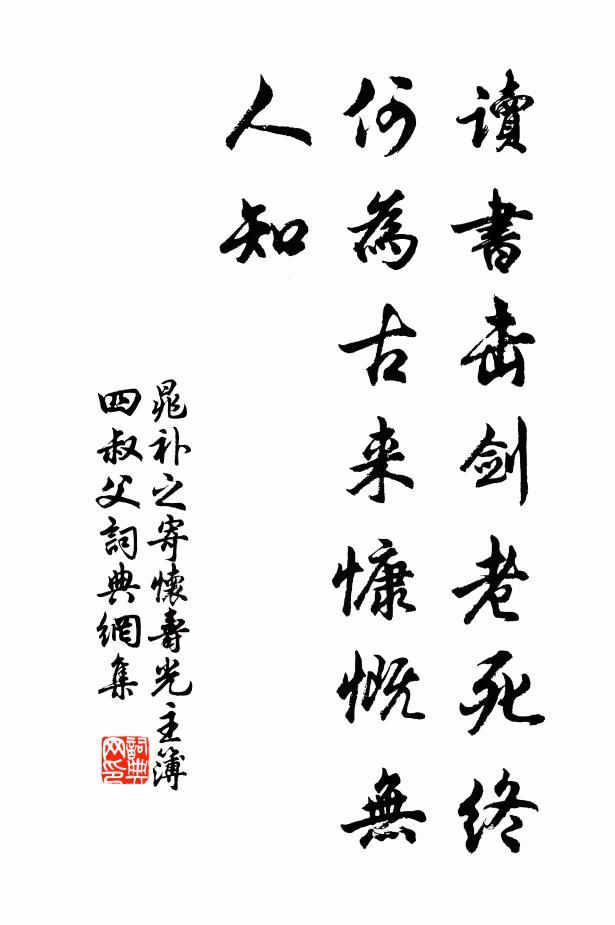 讀書击剑老死终
何為古来慷慨無
人知
晁补之寄懷壽光主簿
四叔父詞典網集
詞典
网印